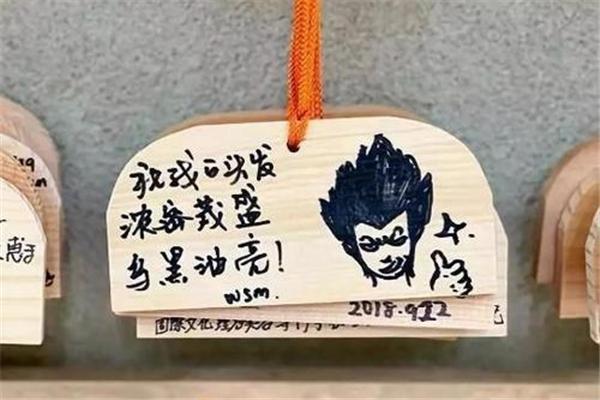 祝我的头发
浓密茂盛
乌黑油亮!
WSM.
2018.9.22
国际文化理